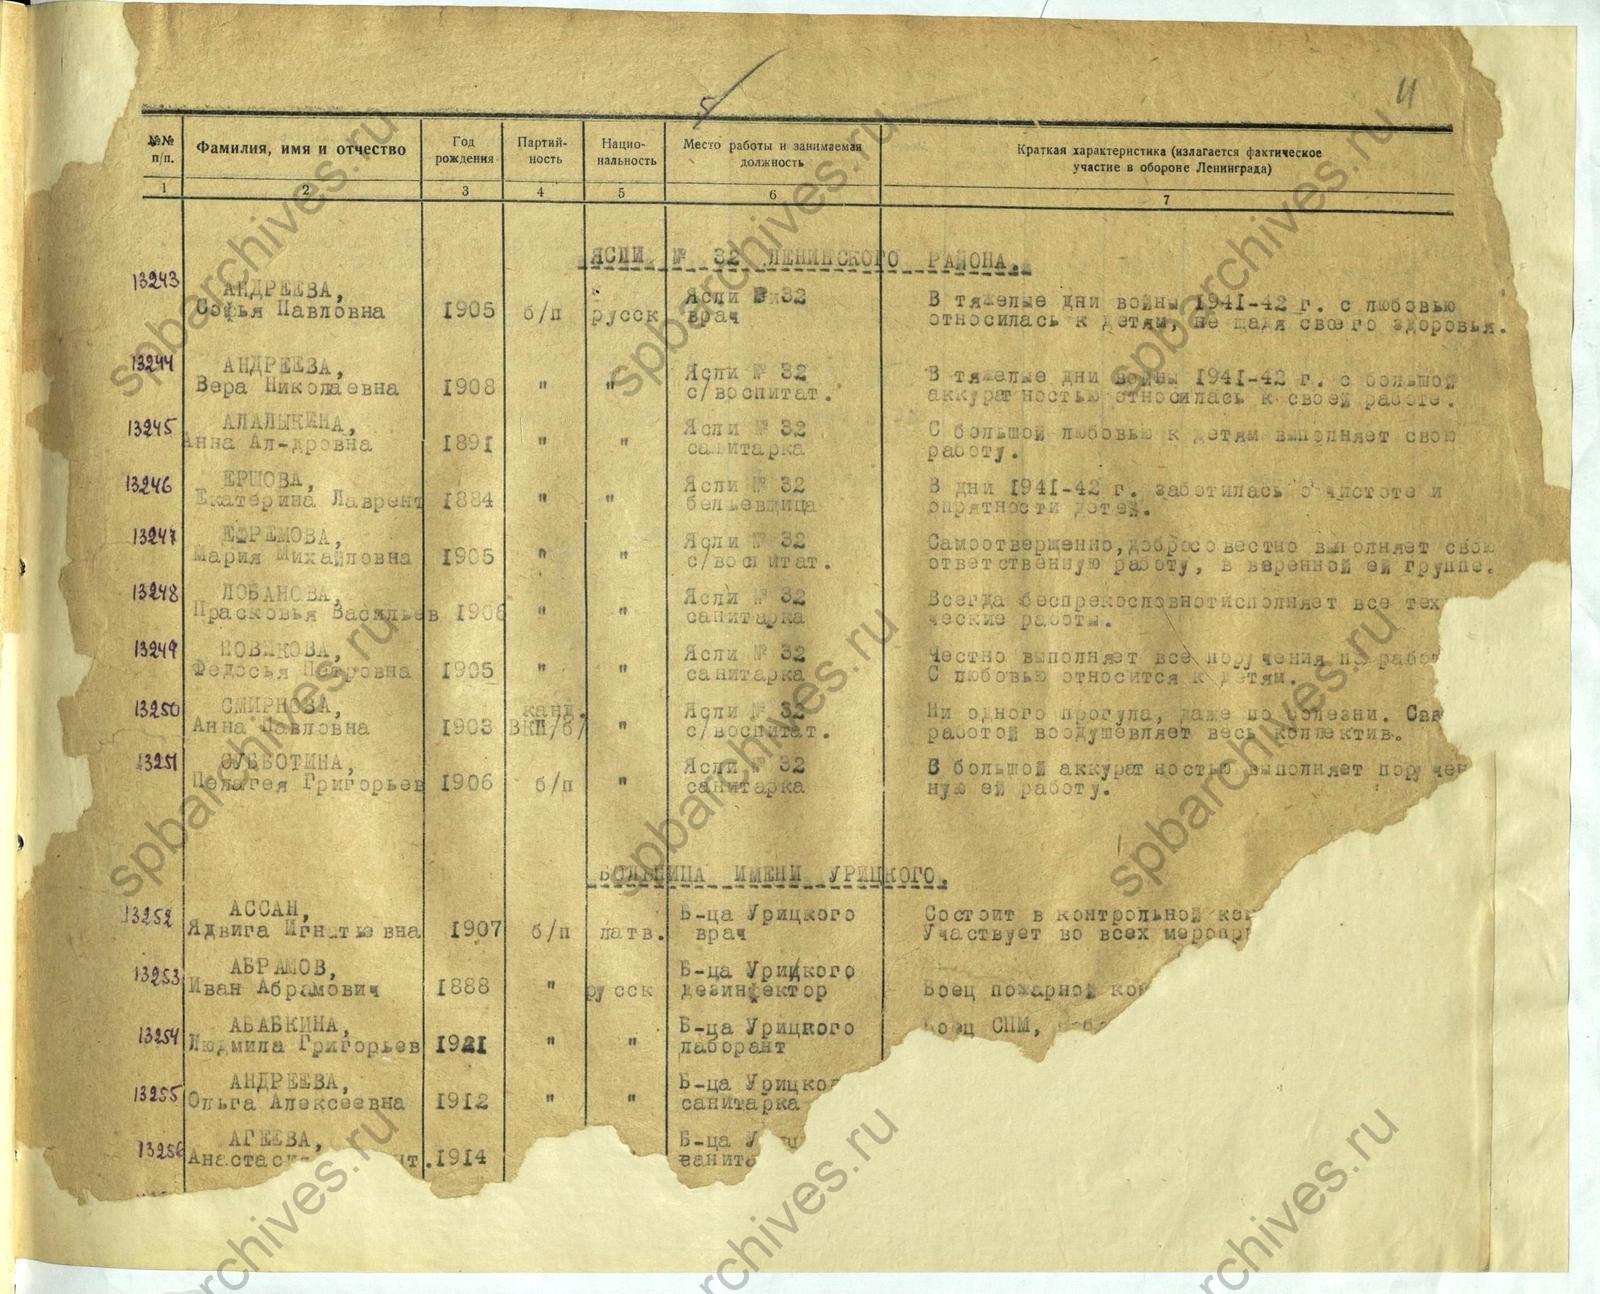 11
№№ п/п. Фамилия, имя и отчество Год рождения Партий-ность Нацио-нальность Место работы и занимаемая должность Краткая характеристика (излагается фактическое участие в обороне Ленинграда)
1 2 3 4 5 6 7
ЯСЛИ № 32 ЛЕНИНСКОГО РАЙОНА.
13243 АНДРЕЕВА, Ясли № 32 В тяжелые дни войны 1941-42 г. с любовью
Софья Павловна 1905 б/п русск врач относилась к детям, не щадя своего здоровья.
13244 АНДРЕЕВА, Ясли № 32 В тяжелые дни войны 1941-42 г. с большой
Вера Николаевна 1908 " " с/воспитат. аккуратностью относилась к своей работе.
13245 АЛАЛЫКИНА, Ясли № 32 С большой любовью к детям выполняет свою
Анна Ал-дровна 1891 " " санитарка работу.
13246 ЕРШОВА, Ясли № 32 В дни 1941-42 г. заботилась о чистоте и
Екатерина Лаврент 1884 " " бельевщица опрятности детей.
13247 ЕФРЕМОВА, Ясли № 32 Самоотверженно, добросовестно выполняет свою
Мария Михайловна 1905 " " с/воспитат. ответственную работу, в веренной ей группе.
13248 ЛОБАНОВА, Ясли № 32 Всегда беспрекословнотисполняет все тех
Прасковья Васильев 1906 " " санитарка ческие работы.
13249 НОВИКОВА, Ясли № 32 Честно выполняет все поручения по рабо
Федосья Петровна 1905 " " санитарка С любовью относится к детям.
13250 СМИРНОВА, канд. Ясли № 32 Ни одного прогула, даже по болезни. Сво
Анна Павловна 1903 ВКП/б/ " с/воспитат. работой воодушевляет весь коллектив.
13251 СУББОТИНА, Ясли № 32 С большой аккуратностью выполняет поручен
Пелагея Григорьев 1906 б/п " санитарка ную ей работу.
БОЛЬНИЦА ИМЕНИ УРИЦКОГО.
13252 АССАН, Б-ца Урицкого Состоит в контрольной ком
Ядвига Игнатьевна 1907 б/п латв. врач Участвует во всех меропри
13253 АБРАМОВ, Б-ца Урицкого
Иван Абрамович 1888 " русск дезинфектор Боец пожарной ком
13254 АБАБКИНА, Б-ца Урицкого Боец СПМ,
Людмила Григорьев 1921 " " лаборант
13255 АНДРЕЕВА, Б-ца Урицког
Ольга Алексеевна 1912 " " санитарка
13256 АГЕЕВА, Б-ца
Анастаси нт. 1914 санита
spbarchives.ru
spbarchives.ru
spbarchives.ru
spbarchives.ru
spbarchives.ru
spbarchives.ru
rchives.ru
rchives.ru
rchives.ru